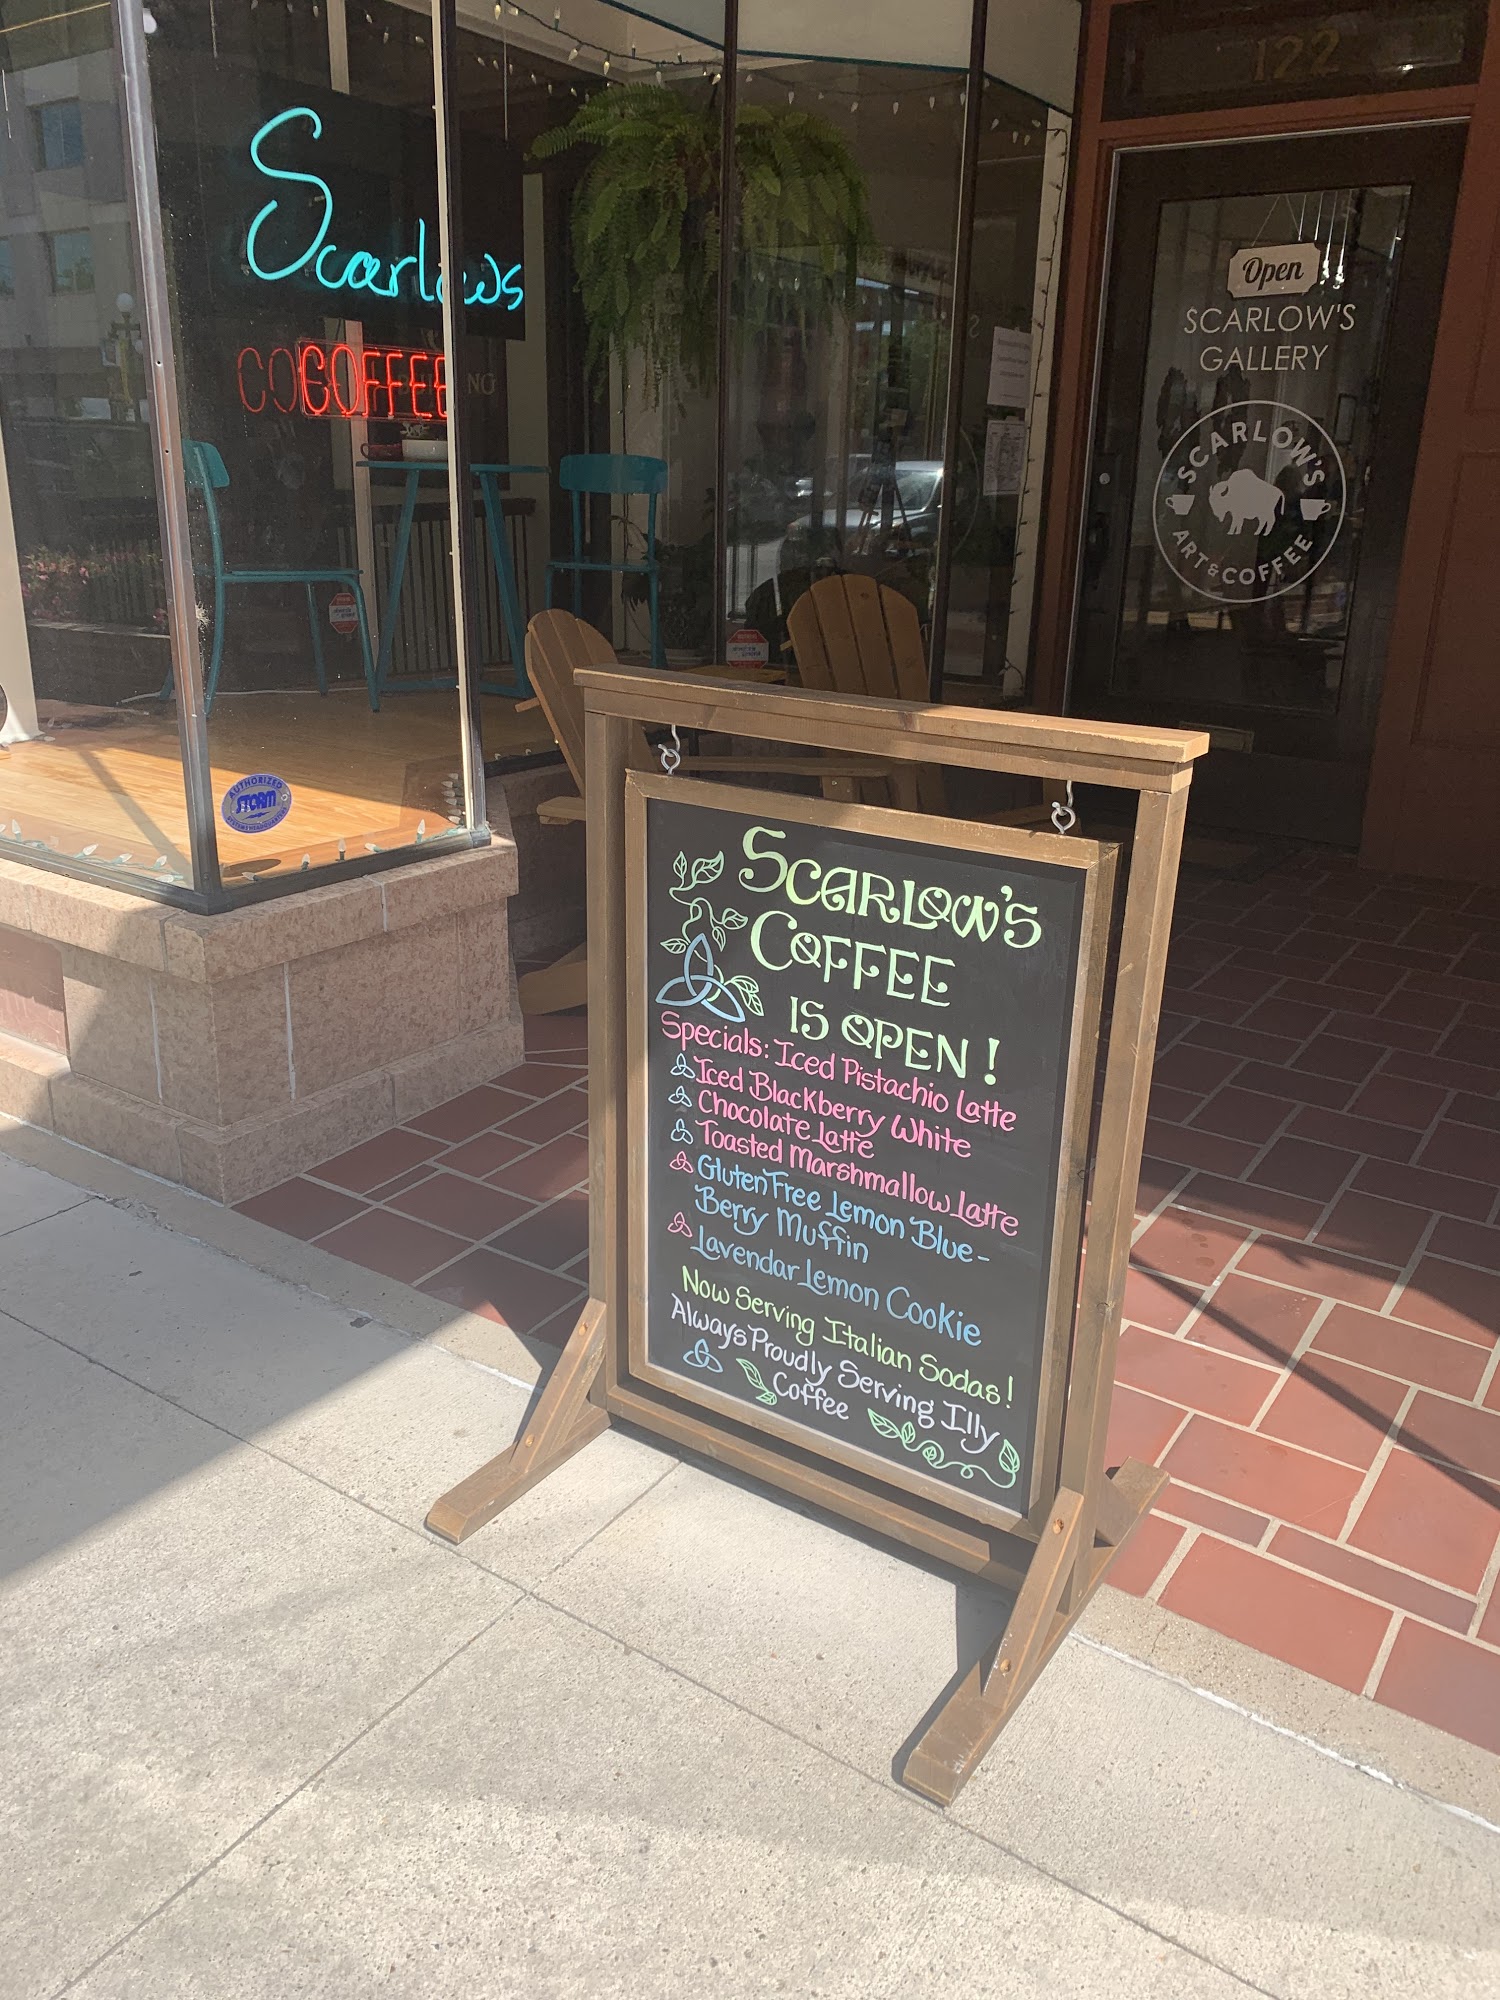 122
Scarlows
COFFEE
Open
SCARLOW'S
GALLERY
SCARLOW'S
ART & COFFEE
AUTHORIZED
STORM
SCARLOW'S
COFFEE
IS OPEN!
Specials: Iced Pistachio Latte
Iced Blackberry White
Chocolate Latte
Toasted Marshmallow Latte
Gluten Free Lemon Blue-
Berry Muffin
Lavendar Lemon Cookie
Now Serving Italian Sodas!
Always Proudly Serving Illy
Coffee